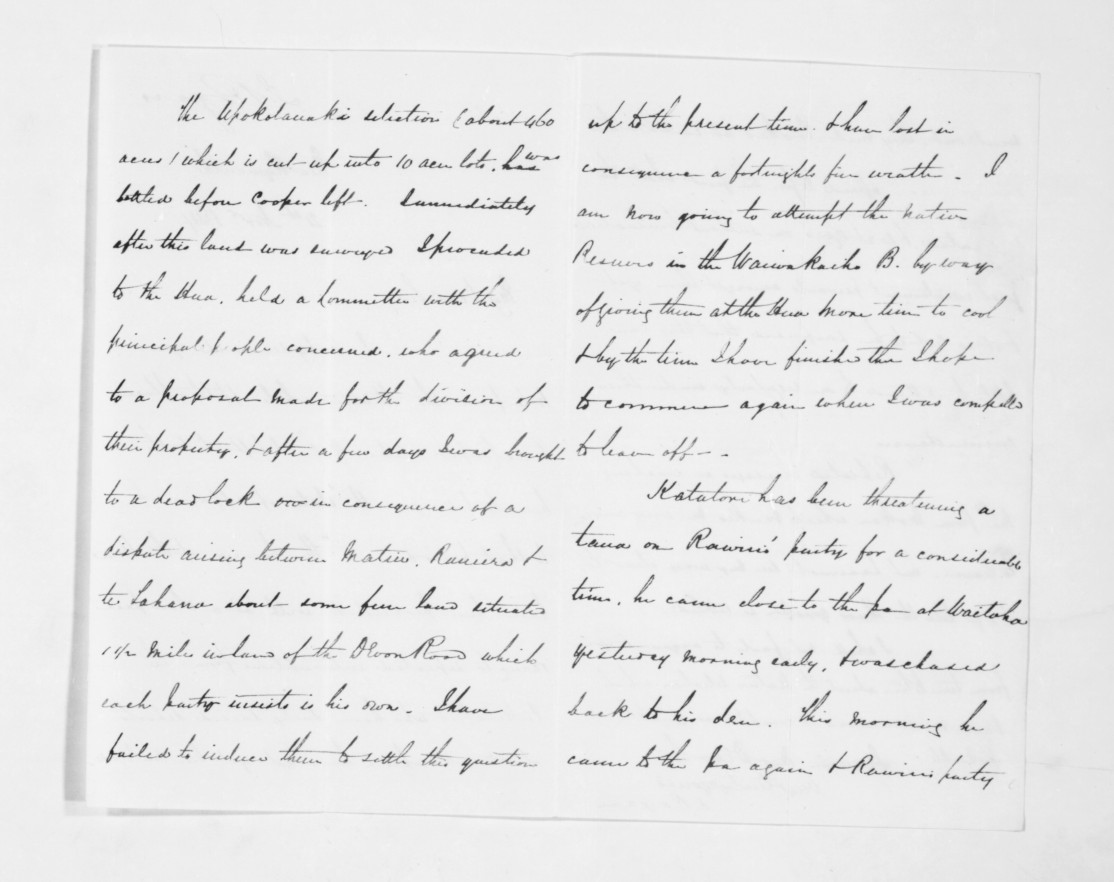 The Upokotauaki selection (about 460
acres) which is cut up into 10 acre lots, has was
settled before Cooper left. Immediately
after this land was surveyed I proceeded
to the Hua, held a Committee with the
principal people concerned, who agreed
to a proposal made for the division of
their property, & after a few days I was brought
to a dead lock in consequence of a
dispute arising between Matiu, Raniera &
te Tahana about some fern land situated
1 1/2 Mile inland of the Devon Road which
each party insists is his own. I have
failed to induce them to settle this question
up to the present time. & have lost in
consequence a fortnights fine weather. I
am now going to attempt the native
Reserves in the Waiwakaiho B. by way
of giving them at the Hua more time to cool
& by the time I have finished the I hope
to commence again where I was compelled
to leave off--
Katatore has been threatening a
taua on Rawiri's party for a considerable
time, he came close to the pa at Waitaha
yesterday morning early, & was chased
back to his den. This morning he
came to the pa again & Rawiri's party